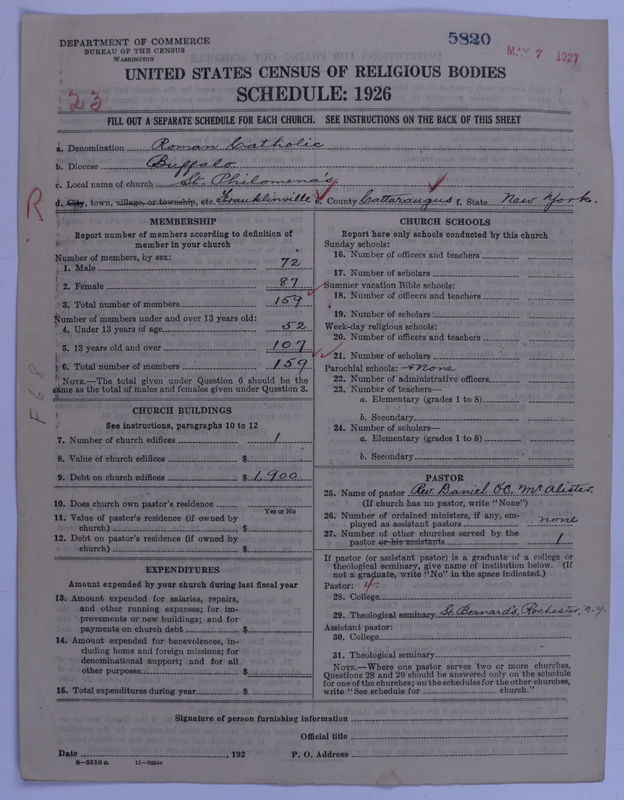 DEPARTMENT OF COMMERCE
BUREAU OF THE CENSUS
WASHINGTON
5820
MAY 7 1927
UNITED STATES CENSUS OF RELIGIOUS BODIES
SCHEDULE: 1926
23
FILL OUT A SEPARATE SCHEDULE FOR EACH CHURCH. SEE INSTRUCTIONS ON THE BACK OF THIS SHEET
a. Denomination Roman Catholic
b. Diocese Buffalo
c. Local name of church St. Philomena's
d. City, town, village, or township, etc. Franklinville e. County Cattaraugus f. State New York.
R
F68
MEMBERSHIP
Report number of members according to definition of
member in your church
Number of members, by sex:
1. Male 72
2. Female 87
3. Total number of members 159
Number of members under and over 13 years old:
4. Under 13 years of age 52
5. 13 years old and over 107
6. Total number of members 159
NOTE.—The total given under Question 6 should be the
same as the total of males and females given under Question 3.
CHURCH BUILDINGS
See instructions, paragraphs 10 to 12
7. Number of church edifices 1
8. Value of church edifices $
9. Debt on church edifices $ 1,900
10. Does church own pastor's residence
Yes or No
11. Value of pastor's residence (if owned by
church) $
12. Debt on pastor's residence (if owned by
church) $
EXPENDITURES
Amount expended by your church during last fiscal year
13. Amount expended for salaries, repairs,
and other running expenses; for im-
provements or new buildings; and for
payments on church debt $
14. Amount expended for benevolences, in-
cluding home and foreign missions; for
denominational support; and for all
other purposes $
15. Total expenditures during year $
CHURCH SCHOOLS
Report here only schools conducted by this church
Sunday schools:
16. Number of officers and teachers
17. Number of scholars
Summer vacation Bible schools:
18. Number of officers and teachers
19. Number of scholars
Week-day religious schools:
20. Number of officers and teachers
21. Number of scholars
Parochial schools: None
22. Number of administrative officers
23. Number of teachers—
a. Elementary (grades 1 to 8)
b. Secondary
24. Number of scholars—
a. Elementary (grades 1 to 8)
b. Secondary
PASTOR
25. Name of pastor Rev. Daniel O'C. McAlister.
(If church has no pastor, write "None")
26. Number of ordained ministers, if any, em-
ployed as assistant pastors none
27. Number of other churches served by the
pastor or his assistants 1
If pastor (or assistant pastor) is a graduate of a college or
theological seminary, give name of institution below. (If
not a graduate, write "No" in the space indicated.)
Pastor: 4
28. College
29. Theological seminary St. Bernard's, Rochester, N.Y.
Assistant pastor:
30. College
31. Theological seminary
NOTE.—Where one pastor serves two or more churches,
Questions 28 and 29 should be answered only on the schedule
for one of the churches; on the schedules for the other churches,
write "See schedule for church."
Signature of person furnishing information
Official title
Date , 192 P. O. Address
8—5519a